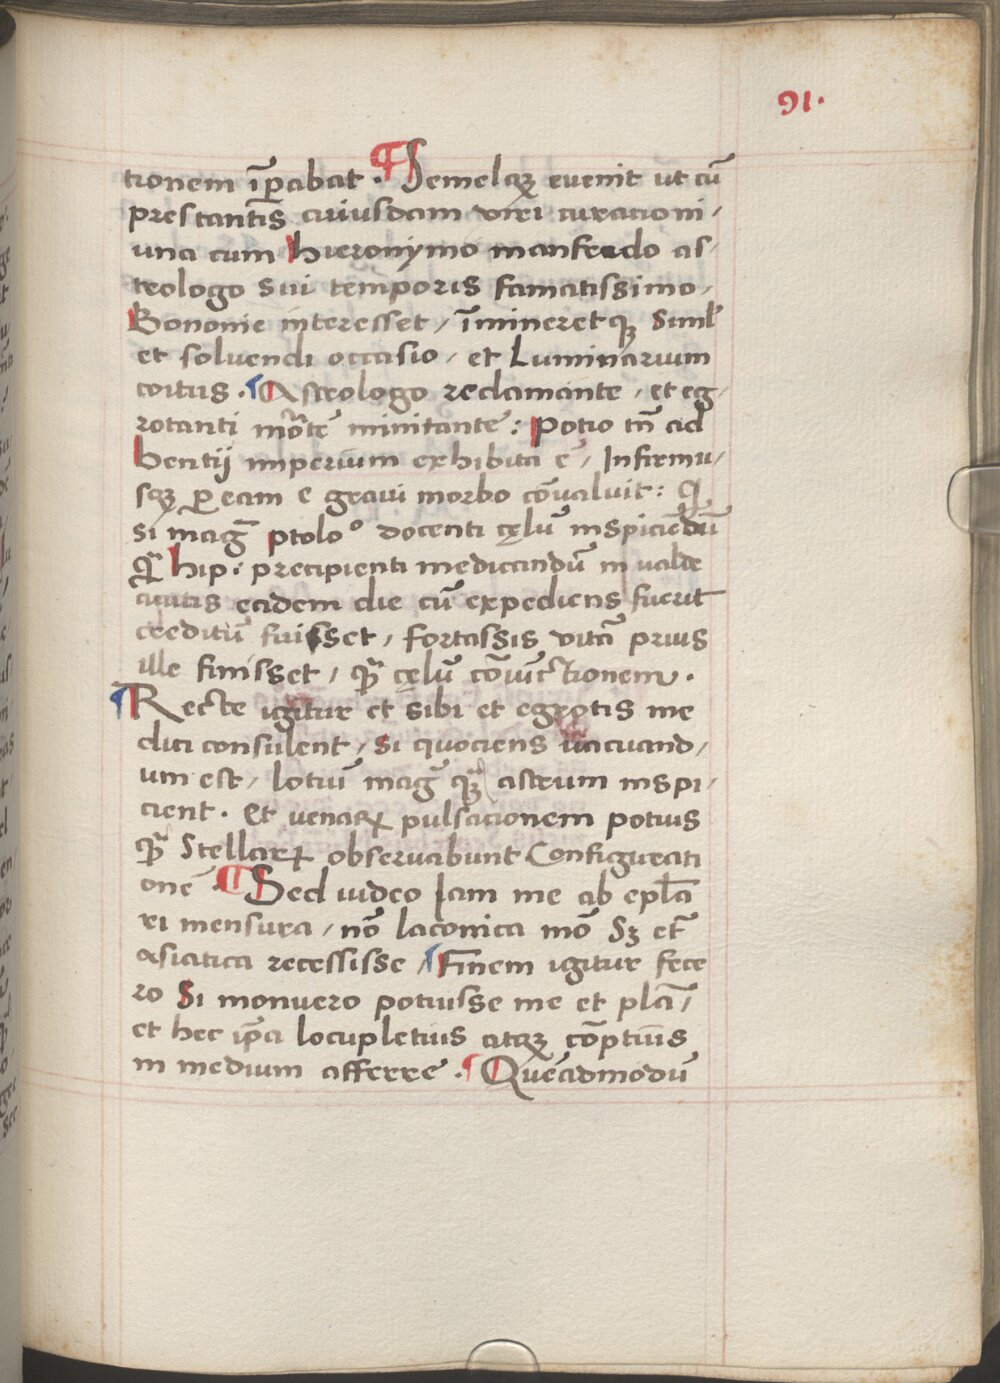 91.
tionem īꝑabat. ¶ Semelqꝫ evenit ut cū
prestantis cuiusdam viri curacioni/
una cum hieronymo manfredo as/
trologo sui temporis famatissimo/
Bononie interesset/ īmineretqꝫ Siml̄
et soluendi occasio/ et Luminarium
coitus. ¶ Astrologo reclamante/ et eg/
rotanti mortē minitante: Potio tn̄ ad
bentij imperium exhibita ē/ Infirmu/
sqꝫ ꝑ eam e gravi morbo cōvaluit: Q
si mag̃ ptoloº docenti cęlū inspiciēdū
q̃ꝫ hip: precipienti medicandū in valde
acutis eadem die cū expediens fuerit
creditū fuisset/ fortassis vitā prius
ille finisset/ q̃ꝫ cęlū cōiūctionem.
¶ Recte igitur et sibi et egrotis me
dici consulent/ Si quociens vacuand/
um est/ lotiū mag̃ q̃ꝫ astrum inspi/
cient. Et venaꝝ pulsacionem potius
q̃ꝫ Stellaꝝ observabunt Configurati
onē. ¶ Sed video Iam me ab epl̄a
ri mensura/ nō laconica mō Sꝫ et̄
asiatica recessisse/ ¶ Finem igitur fece
ro Si monuero potuisse me et pl̄a/
et hec ip̄a locupletius atqꝫ cōptius
in medium afferre. ¶ Quēadmodū